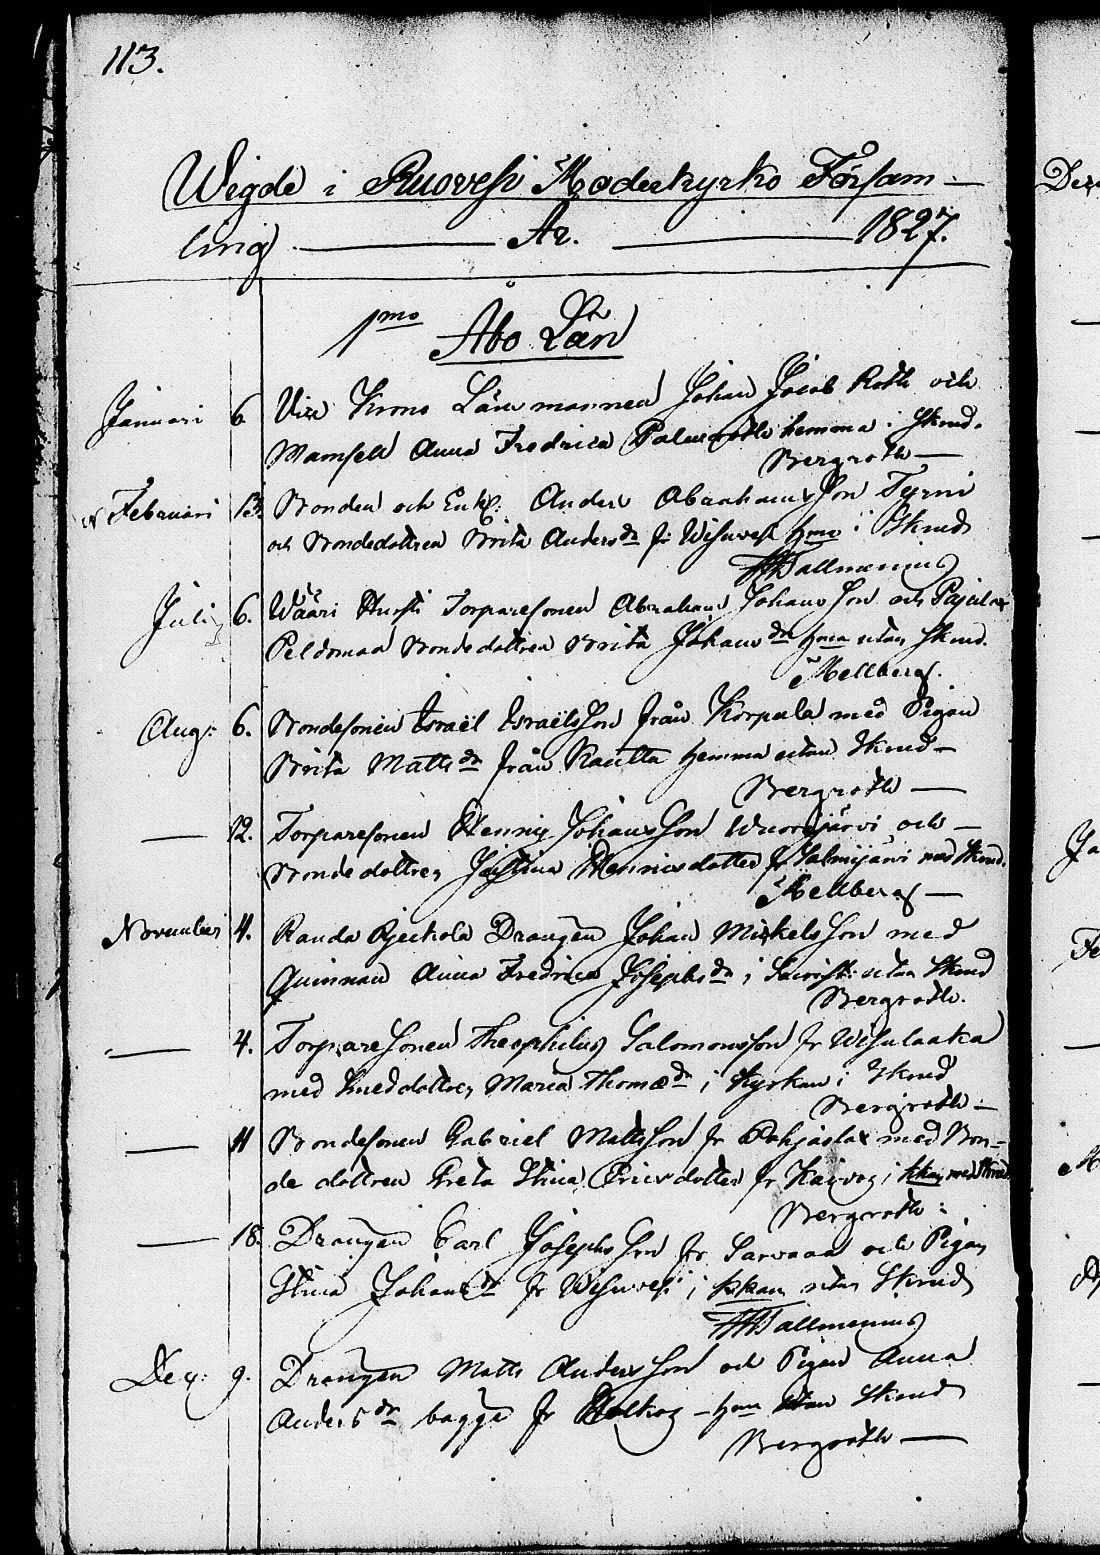 113.
Wigde i Ruovesi Moderkyrko Försam-
ling År. 1827.
1mo Åbo Län
Januari 6. Vice Krono Länsmannen Johan Jacob Roth och
Mamsell Anna Fredrica Palmroth hemma i Skrud.
Bergroth
Februari 13. Bonden och Enkl: Anders Abrahamsson Tyrni
och Bondedottren Brita Andersdr fr: Wisuvesi hma i Skrud
Tallmenius
Juli 6. Wääri Torparesonen Abraham Johansson och
Bondedottren Brita Johansdr hma utan Skrud.
Mellberg.
Aug: 6. Bondesonen Israël Israëlsson från Korpula med Pigan
Brita Mattsdr från Rautta hemma utan Skrud
Bergroth
12. Torparesonen Henric Johansson Wuorijärvi och
Bondedottren Justina Henricsdotter fr Salmijärvi med Skrud.
Mellberg
November 4. Randa Drängen Johan Mickelsson med
Quinnan Anna Fredrica Josephsdr i utan Skrud
Bergroth.
4. Torparesonen Theophilus Salomonsson fr
med dottren Maria Thomædr i Kyrkan i Skrud
Bergroth
11 Bondesonen Gabriel Mattsson fr Pohjaslax med Bon-
de dottren Greta Stina Ericsdotter fr i kkan med Skrud
Bergroth:
18. Drängen Carl Josephsson fr och Pigan
Stina Johansdr fr Wisuvesi i kkan utan Skrud
Tallmenius
Dec: 9. Drängen Matts Andersson och Pigan Anna
Andersdr bägge fr hma utan Skrud
Bergroth